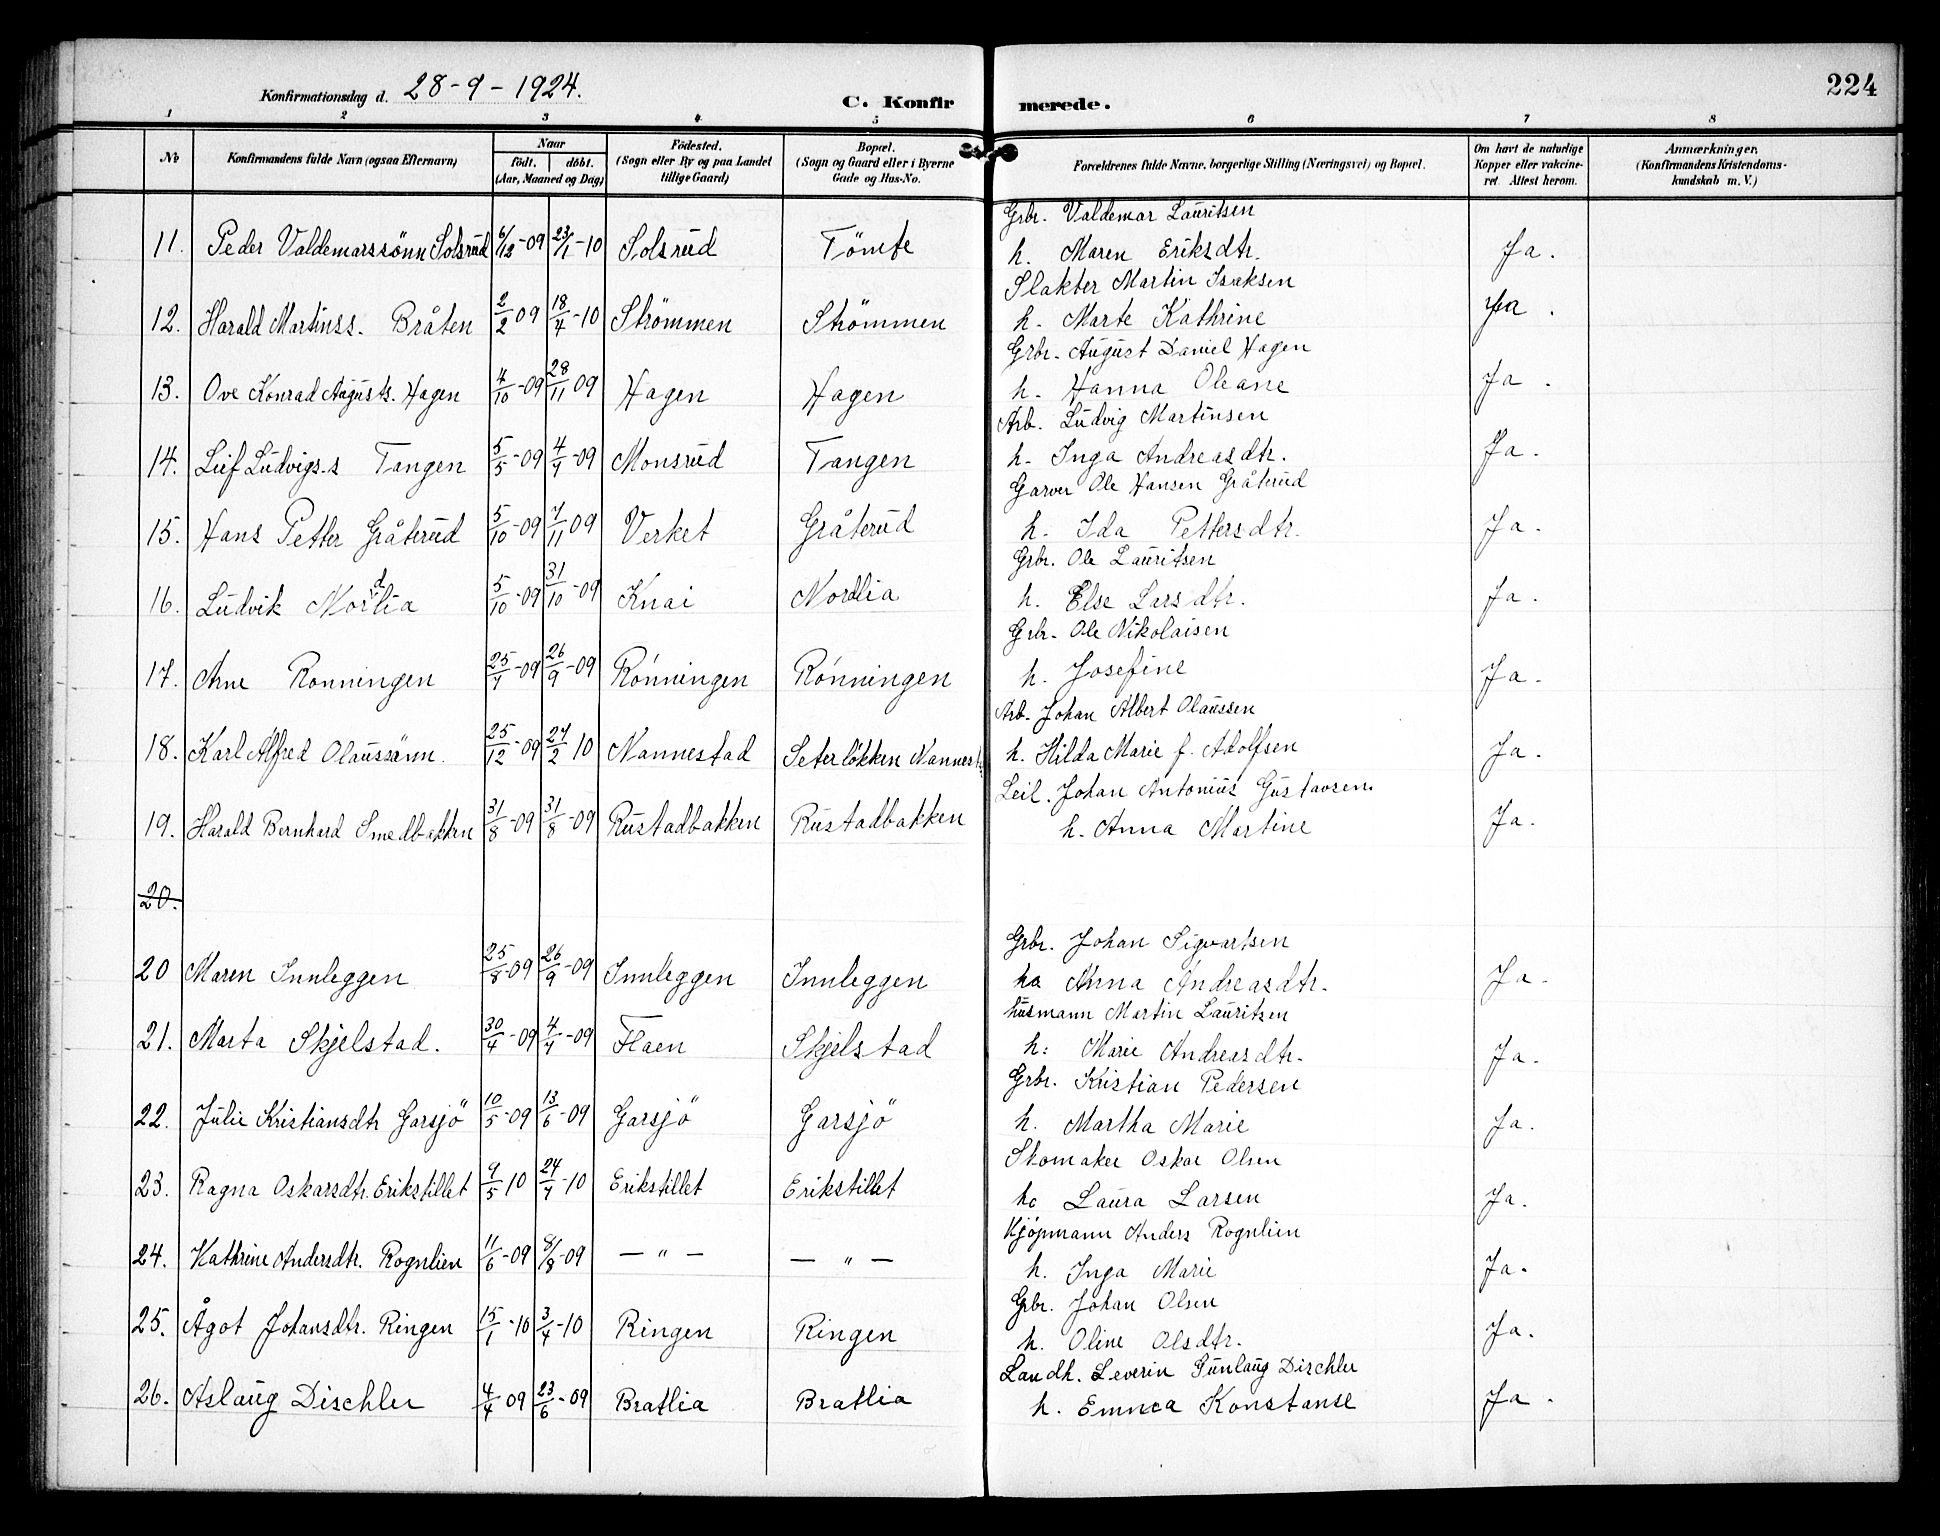 224
Konfirmationsdag d. 28-9-1924.
C. Konfirmerede.
1 2 3 4 5 6 7 8
No
Konfirmandens fulde Navn (ogsaa Efternavn)
Naar
födt. döbt.
(Aar, Maaned og Dag)
Födested.
(Sogn eller By og paa Landet
tillige Gaard)
Bopæl.
(Sogn og Gaard eller i Byerne
Gade og Hus-No.
Forældrenes fulde Navne, borgerlige Stilling (Næringsvei) og Bopæl.
Om havt de naturlige
Kopper eller vakcine-
ret. Attest herom.
Anmærkninger.
(Konfirmandens Kristendoms-
kundskab m. V.)
Grbr. Valdemar Lauritsen
11. Peder Valdemarssönn Solsrud 6/12-09 23/1-10 Solsrud Tömte h. Maren Eriksdtr. Ja.
Slakter Martin Isaksen
12. Harald Martinss. Bråten 2/2 09 18/4-10 Strömmen Strömmen h. Marte Kathrine Ja.
Grbr. August Daniel Hagen
13. Ove Konrad Augusts. Hagen 4/10-09 28/11 09 Hagen Hagen h. Hanna Oleane Ja.
Arb. Ludvig Martinsen
14. Leif Ludvigs-s Tangen 5/5-09 4/7-09 Monsrud Tangen h. Inga Andreasdtr. Ja.
Garver Ole Hansen Gråterud
15. Hans Petter Gråterud 5/10-09 7/11 09 Verket Gråterud h. Ida Pettersdtr. Ja.
Grbr. Ole Lauritsen
16. Ludvik Nordlia 5/10-09 31/10-09 Knai Nordlia h. Else Larsdtr. Ja.
Grbr. Ole Nikolaisen
17. Arne Ronningen 25/7-09 26/9-09 Rónningen Rónningen h. Josefine Ja.
Arb. Johan Albert Olaussen
18. Karl Alfred Olaussönn. 25/12-09 27/2 10 Nannestad Seterlökken h. Hilda Marie f. Adolfsen Ja.
Leil. Johan Antonius Gustavsen.
19. Harald Bernhard Smedbakken 31/8-09 31/8-09 Rustadbakken Rustadbakken h. Anna Martine Ja.
20.
Grbr. Johan Sigvartsen
20 Maren Innleggen 25/8-09 26/9-09 Innleggen Innleggen ha Anna Andreasdtr. Ja.
husmann Martin Lauritsen
21. Marta Skjelstad. 30/4-09 4/7-09 Flaen Skjelstad h: Marie Andreasdtr. Ja.
Grbr. Kristian Pedersen
22. Julie Kristiansdtr Garsjö 10/5-09 13/6-09 Garsjö Garsjö h. Martha Marie Ja.
Skomaker Oskar Olsen
23. Ragna Oskarsdtr. Erikstillet 9/5 10 24/7-10 Erikstillet Erikstillet Laura Larsen Ja.
Kjöpmann Anders Rognlien
24. Kathrine Andersdtr. Rognlien 11/6-09 8/8-09 — " — — " — h. Inga Marie Ja.
Grbr. Johan Olsen
25. Ågot Johansdtr. Ringen 15/1-10 3/4-10 Ringen Ringen h. Oline Olsdtr. Ja.
Landh. Severin Dischler
26. Aslaug Dischler 4/4 09 23/6-09 Bratlia Bratlia h. Konstanse Ja.